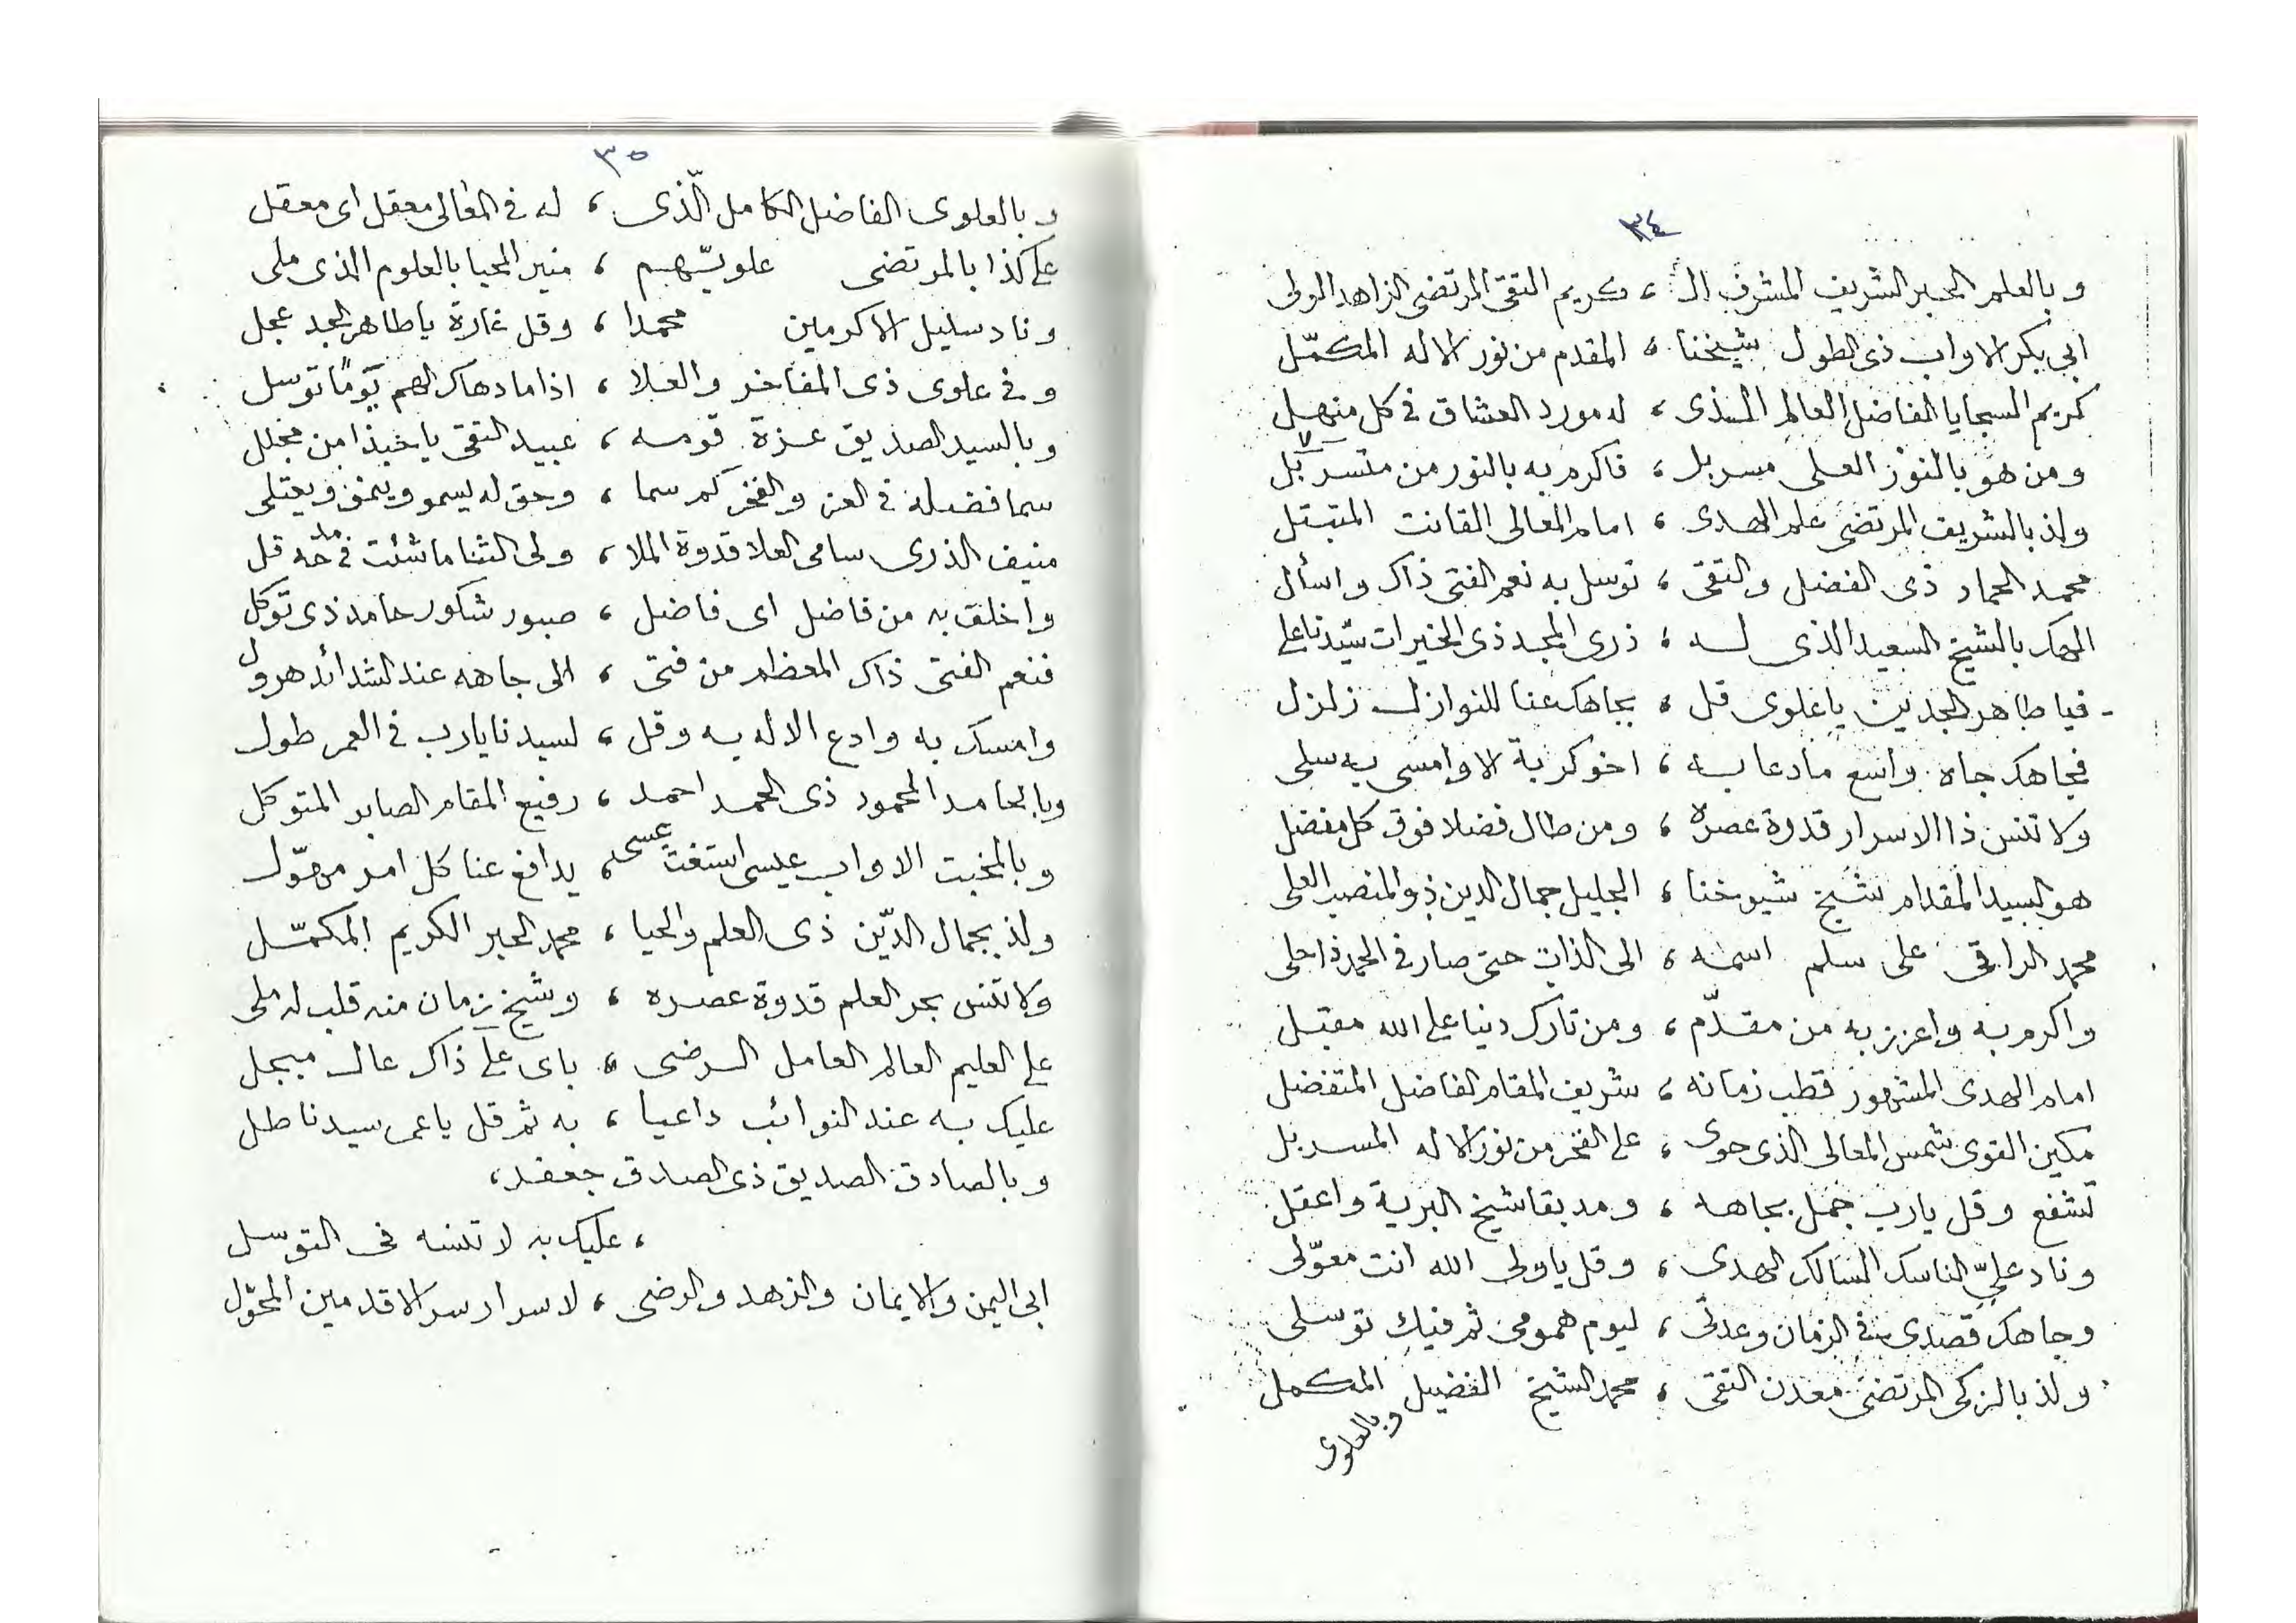 ٣٤
وبالعلم الحبر الشريف المشرف الـ ، ـكريم التقى المرتضى الزاهد الولى
ابى بكر الاواب ذى الطول شيخنا ، المقدم من نور الاله المكمّل
كريم السجايا الفاضل العالم الذى ، له مورد العشاق فى كل منهل
ومن هو بالنور العلى مسربل ، فاكرم به بالنور من متسربل
ولذ بالشريف المرتضى علم الهدى ، امام المعالى القانت المتبتل
محمد الحماد ذى الفضل والتقى ، توسل به نعم الفتى ذاك واسأل
الهك بالشيخ السعيد الذى له ، ذرى المجد ذى الخيرات سيّدنا على
فيا طاهر الجدين يا علوى قل ، بجاهك عنا للنوازل زلزل
فجاهك جاه واسع ما دعا به ، اخو كربة الا وامسى به سلى
ولا تنس ذا الاسرار قدوة عصره ، ومن طال فضلا فوق كل مفضل
هو السيد المقدام شيخ شيوخنا ، الجليل جمال الدين ذو المنصب العلى
محمد الراقى على سلم اسمه ، الى الذات حتى صار فى الحمد ذا حلى
واكرم به واعزز به من مقدّم ، ومن تارك دنيا على الله مقبل
امام الهدى المشهور قطب زمانه ، شريف المقام الفاضل المتفضل
مكين القوى شمس المعالى الذى حوى ، على الفخر من نور الاله المسربل
تشفع وقل يارب جمل بجاهه ، ومد بقا شيخ البرية واعقل
وناد علىّ الناسك السالك الهدى ، وقل يا ولى الله انت معوّلى
وجاهك قصدى فى الزمان وعدتى ، ليوم همومى ثم فيك توسلى
ولذ بالزكى المرتضى معدن التقى ، محمد الشيخ الفضيل المكمل
وبالعلوى
٣٥
وبالعلوى الفاضل الكامل الّذى ، له فى المعالى معقل اى معقل
على كذا بالمرتضى علويّهم ، منير المحيا بالعلوم الذى ملى
وناد سليل الاكرمين محمدا ، وقل غارة يا طاهر الجد عجل
وفى علوى ذى المفاخر والعلا ، اذا ما دهاك الهم يَومًا توسل
وبالسيد الصديق عزة قومه ، عبيد التقى يا حبذا من مجلل
سما فضله فى العز والفخر كم سما ، وحق له يسمو وينمو ويعتلى
منيف الذرى سامى العلا قدوة الملا ، ولى الثنا ما شئت فى مدحه قل
واخلق به من فاضل اى فاضل ، صبور شكور حامد ذى توكل
فنعم الفتى ذاك المعظم من فتى ، الى جاهه عند الشدائد هرول
وامسك به وادع الاله به وقل ، لسيدنا يارب فى العمر طول
وبالحامد المحمود ذى الحمد احمد ، رفيع المقام الصابر المتوكل
وبالمخبت الاواب عيسى استغث عسى ، يدافع عنا كل امر مهوّل
ولذ بجمال الدّين ذى العلم والحيا ، محمد الحبر الكريم المكمّل
ولا تنس بحر العلم قدوة عصره ، وشيخ زمان منه قلب له ملى
على العليم العالم العامل الرضى ، باى على ذاك عال مبجل
عليك به عند النوائب داعيا ، به ثم قل يا عمر سيدنا طل
وبالصادق الصديق ذى الصدق جعفر ،
، عليك به لا تنسه فى التوسل
ابى اليمن والايمان والزهد والرضى ، لاسرار سر الاقدمين المحوّل